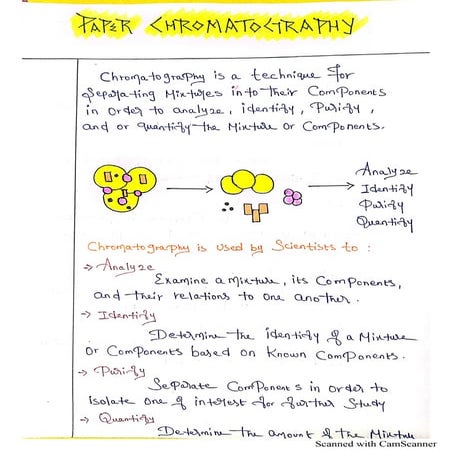 PAPER CHROMATOGRAPHY
Chromatography is a technique for
Separating Mixtures into their Components
in order to analyze, identify, Purify,
and or quantify the Mixture or Components.
Analyze
Identify
Purify
Quantify
Chromatography is used by Scientists to :
→ Analyze
Examine a mixture, its Components,
and their relations to one another.
→ Identify
Determine the identity of a Mixture
or Components based on known Components.
→ Purify
Separate Components in order to
isolate one of interest for further study
→ Quantify
Determine the amount of the Mixture
Scanned with CamScanner